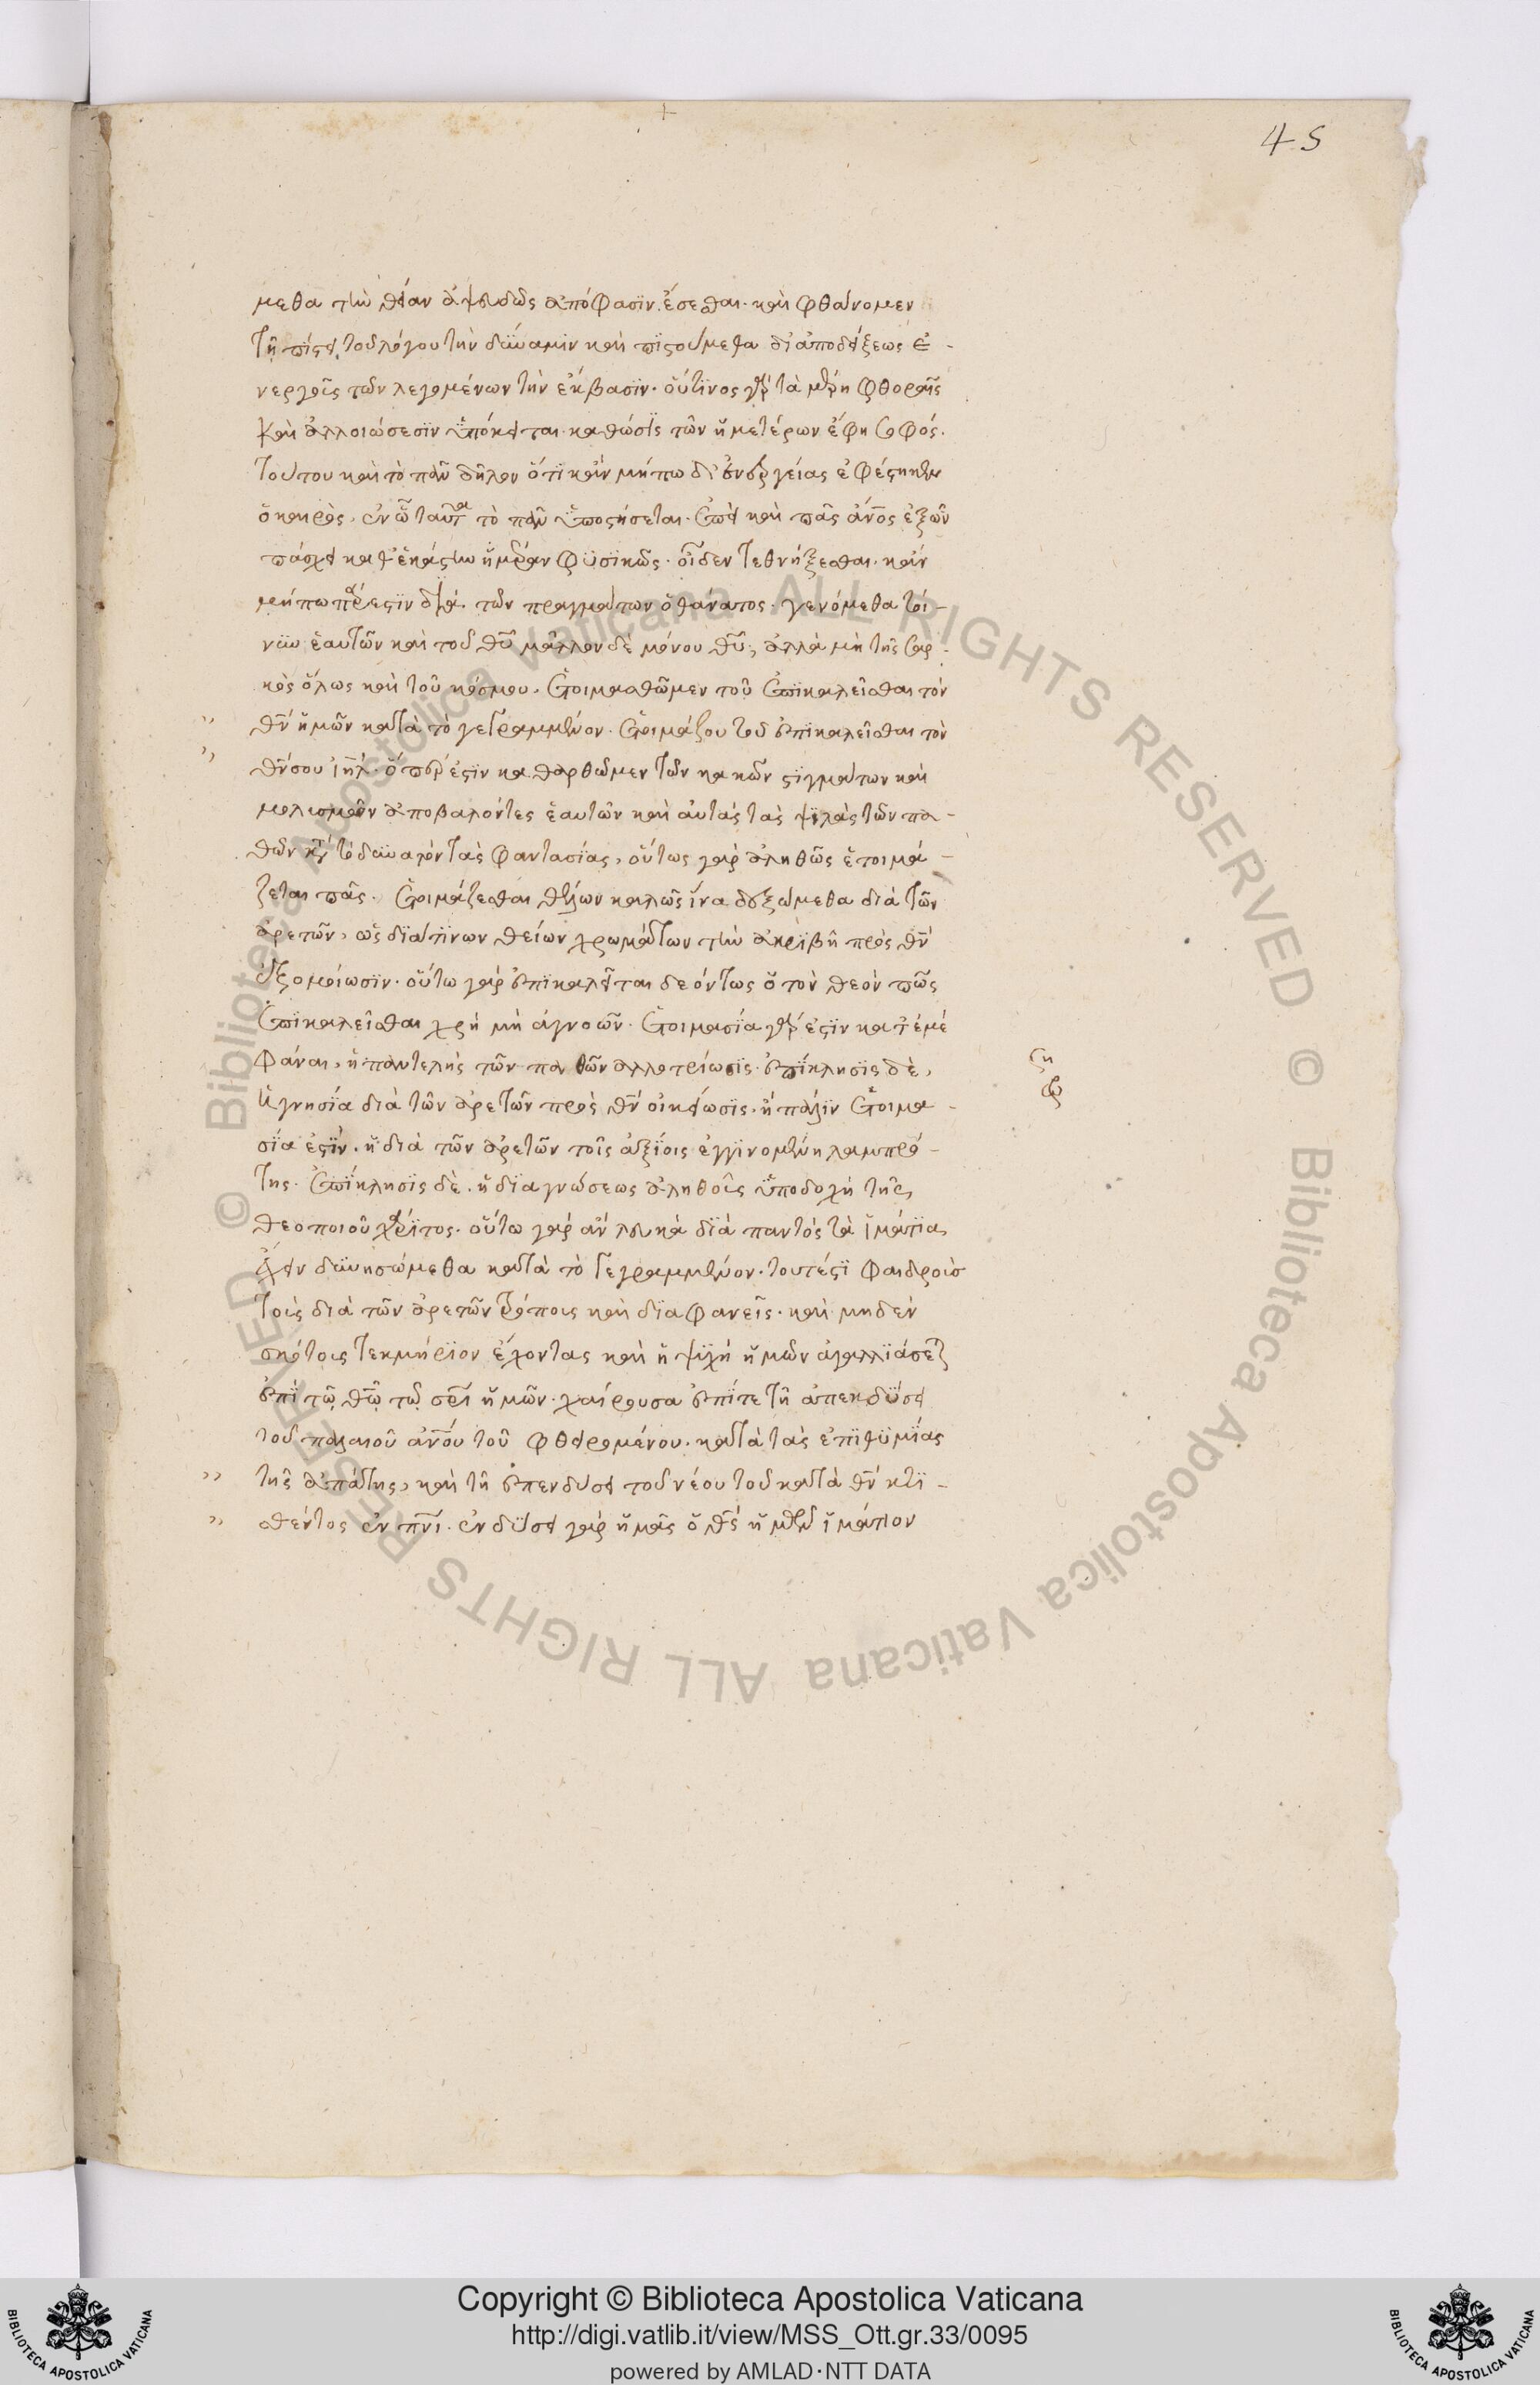 45
μεθα τὴν θείαν ἀψευδῶς ἀπόφασϊν ἔσεσθαι· καὶ φθάνομεν
τῆ πίστει τοῦ λόγου τὴν δύναμϊν καὶ πϊστούμεθα δι' ἀποδείξεως ἐ-
νεργοῦς τῶν λεγομένων τὴν ἔκβασϊν· οὗτϊνος γὰρ τὰ μέρη φθοραῖς
καὶ ἀλλοιώσεσϊν ὑπόκειται· καθώς τϊς τῶν ἡμετέρων ἔφη σοφός.
τούτου καὶ τὸ πᾶν δῆλον ὅτϊ κἂν μήπω δι' ἐνεργείας ἐφέστηκεν
ὁ καιρὸς, ἐν ᾧ ταῦτα τὸ πᾶν ὑποστήσεται· ἐπεὶ καὶ πᾶς ἄν̅ος̅ ἐξ ὧν
πάσχει καθ' ἑκάστην ἡμέραν φϋσϊκῶς· οἶδεν τεθνήξεσθαι· κἂν
μήπω πάρεστϊν διὰ τῶν πραγμάτων ὁ θάνατος· γενόμεθα τοί-
νυν ἑαυτῶν καὶ τοῦ θυ̅ μᾶλλον δὲ μόνου θυ̅, ἀλλὰ μὴ τῆς σαρ-
κὸς ὅλως καὶ τοῦ κόσμου. ἑτοιμασθῶμεν τοῦ ἐπϊκαλεῖσθαι τὸν
θν̅ ἡμῶν κατὰ τὸ γεγραμμένον· ἑτοιμάζου τοῦ ἐπϊκαλεῖσθαι τὸν
θν̅ σου ιη̅λ· ὅπερ ἐστϊν καθαρθῶμεν τῶν κακῶν στϊγμάτων καὶ
μολυσμῶν ἀποβαλόντες ἑαυτῶν καὶ αὐτὰς τὰς ψϊλὰς τῶν πα-
θῶν κατὰ τὸ δυνατὸν τὰς φαντασίας, οὕτως γὰρ ἀληθῶς ἑτοιμά-
ζεται πᾶς· ἑτοιμάζεσθαι θέλων καλῶς ἵνα δεξώμεθα διὰ τῶν
ἀρετῶν, ὡς διά τϊνων θείων χρωμάτων τὴν ἀκρϊβῆ πρὸς θν̅
ἐξομοίωσϊν· οὕτω γὰρ ἐπϊκαλεῖται δεόντως ὁ τὸν θεὸν πῶς
ἐπϊκαλεῖσθαι χρὴ μὴ ἀγνοῶν· ἑτοιμασία γάρ ἐστϊν κατ' ἐμὲ
φάναι, ἡ παντελὴς τῶν παθῶν ἀλλοτρίωσϊς· ἐπϊκλησϊς δὲ,
ἡ γνησία διὰ τῶν ἀρετῶν πρὸς θν̅ οἰκείωσϊς· ἢ πάλϊν ἑτοιμα-
σία ἐστϊν· ἡ διὰ τῶν ἀρετῶν τοῖς ἀξίοις ἐγγϊνομένη λαμπρό-
της· ἐπϊκλησϊς δὲ· ἡ διὰ γνώσεως ἀληθοῦς ὑποδοχὴ τῆς
θεοποιοῦ χάρϊτος· οὕτω γὰρ ἂν λευκὰ διὰ παντὸς τὰ ἱμάτϊα
ἔχειν δυνησώμεθα κατὰ τὸ γεγραμμένον· τουτέστϊ φαιδροὺσ
τοὺς διὰ τῶν ἀρετῶν τρόπους καὶ δϊαφανεῖς· καὶ μηδὲν
σκότους τεκμήρϊον ἔχοντας καὶ ἡ ψϋχὴ ἡμῶν ἀγαλλϊάσεται
ἐπὶ τῷ θῶ̅ τῶ σρ̅ι ἡμῶν· χαίρουσα ἐπί τε τῆ ἀπεκδύσει
τοῦ παλαιοῦ ἀν̅ου̅ τοῦ φθειρομένου· κατὰ τὰς ἐπϊθϋμίας
τῆς ἀπάτης, καὶ τῆ ἐπενδύσει τοῦ νέου τοῦ κατὰ θν̅ κτϊ-
σθέντος ἐν πν̅ι· ἐνδύσει γὰρ ἡμᾶς ὁ θς̅ ἡμῶν ἱμάτιον
Copyright © Biblioteca Apostolica Vaticana
http://digi.vatlib.it/view/MSS_Ott.gr.33/0095
powered by AMLAD·NTT DATA
BIBLIOTECA APOSTOLICA VATICANA
BIBLIOTECA APOSTOLICA VATICANA
© Biblioteca Apostolica Vaticana ALL RIGHTS RESERVED
© Biblioteca Apostolica Vaticana ALL RIGHTS RESERVED